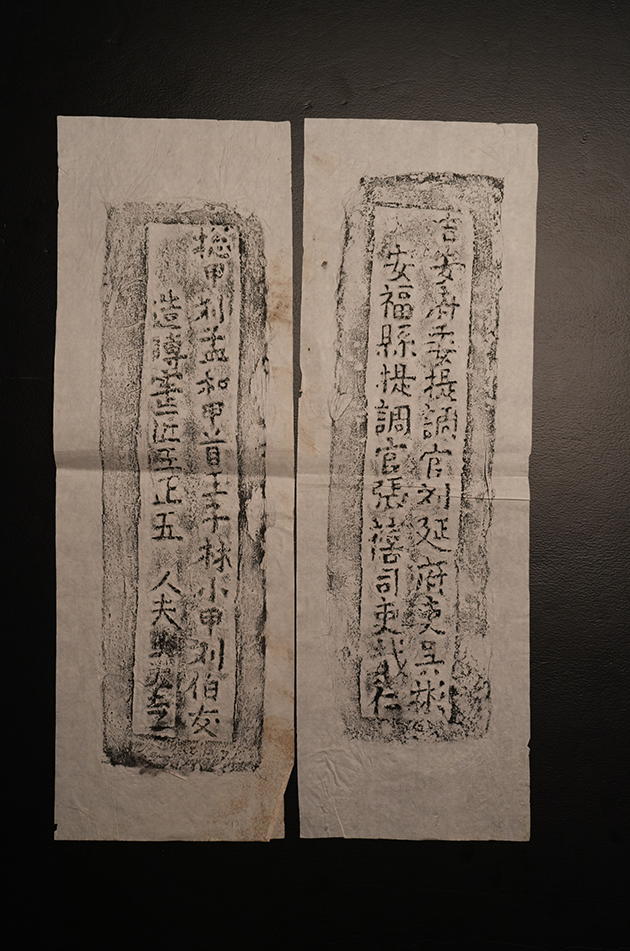 吉安府委提調官刘延府吏吴彬
安福縣提調官張司吏仁
総甲刘孟和甲首王子林小甲刘伯友
造塼匠王正五 人夫